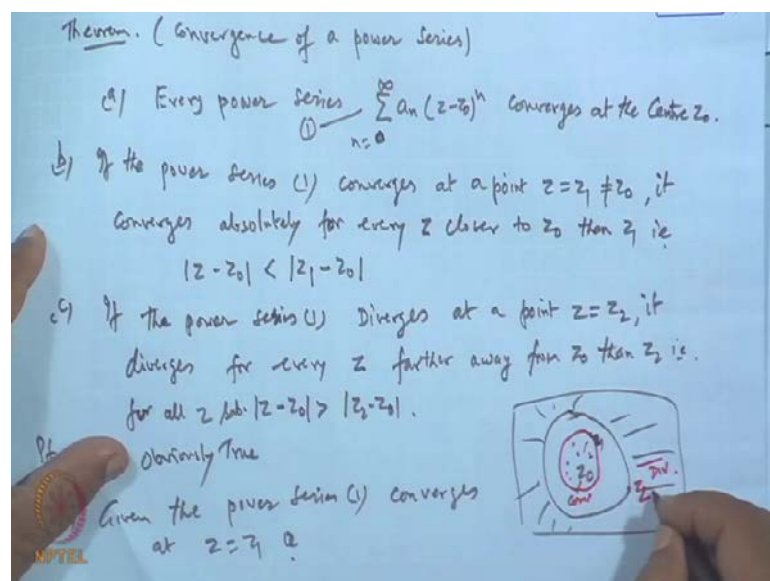 Theorem. (Convergence of a power series)
(a) Every power series ∑_{n=0}^{∞} an (z-z0)^n converges at the Centre z0.
①
b) If the power series (1) converges at a point z = z1 ≠ z0, it
converges absolutely for every z closer to z0 than z1 ie
|z - z0| < |z1 - z0|
(c) If the power series (1) Diverges at a point z = z2, it
diverges for every z farther away from z0 than z2 ie.
for all z s.t. |z-z0| > |z2-z0|.
Pf.
Obviously True
Given the power series (1) converges
at z = z1
z0
Conv
Div.
z2
NPTEL